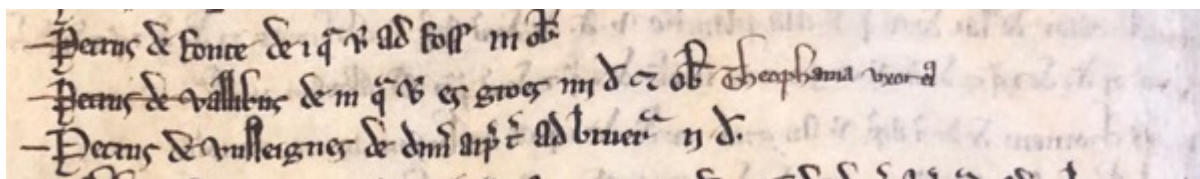 Petrus de fonte de i qª v̄ ad foss iii ob
Petrus de vallibus de iii qª v̄ es groes iiii d̄ ⁊ ob Theophania uxor
Petrus de vulleignes de dim̄ arp̄ t̄ ad bruerª ii d̄.